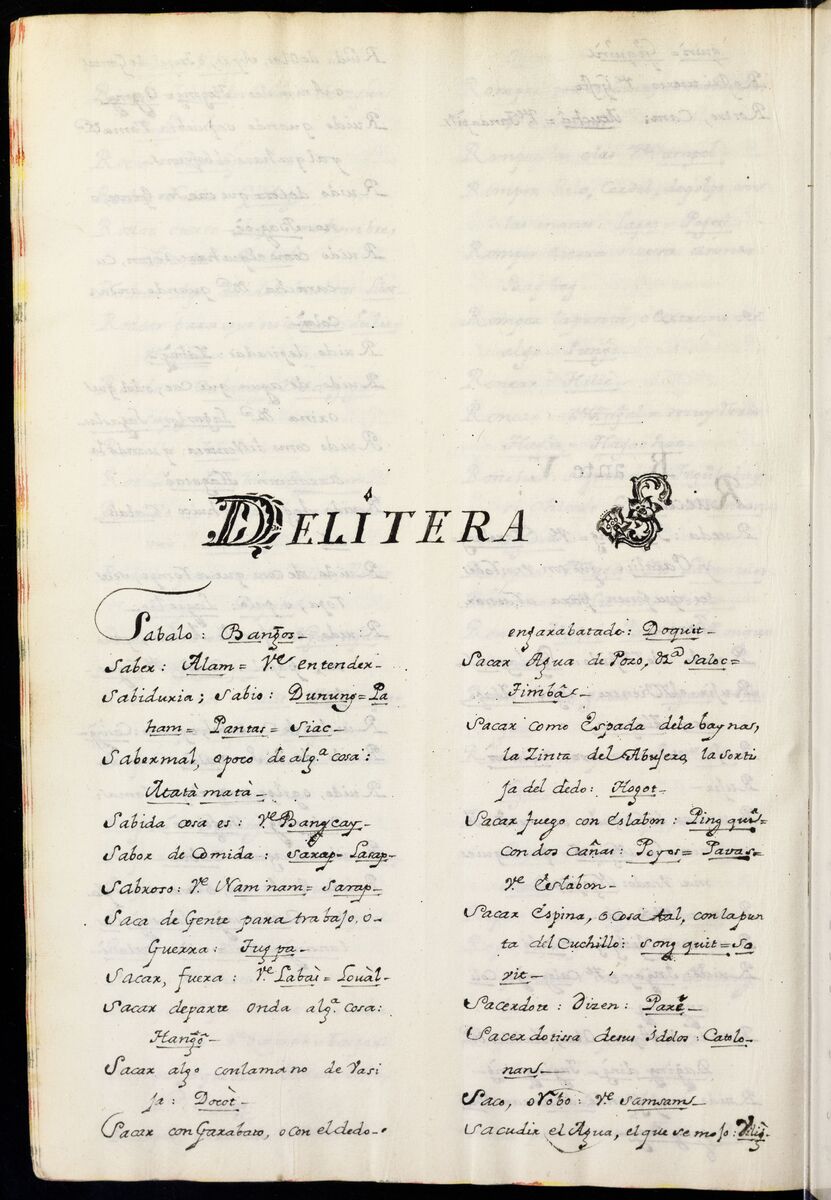 DE LITERA S
Sabalo: Bangos_
Saber: Alam= Ve entender_
Sabiduria; Sabio: Dunung= Pa
ham= Pantas= Siac_
Saber mal, o poco de alg.ª cosa:
Atatà matà_
Sabida cosa es: Ve Bangcay_
Sabor de Comida: Sarap_ Lasap_
Sabroso: Ve Nam nam= Sarap_
Saca de Gente para trabajo, o_
Guerra:
Sacar, fuera: Ve Labàs= Louàl_
Sacar de parte onda alg.ª cosa:
Hangò_
Sacar algo con la mano de Vasi
ja: Docòt_
Sacar con Garabato, o con el dedo_
engarabatado: Doquit_
Sacar Agua de Pozo, &ª Saloc=
Timbà_
Sacar como Espada de la baynas,
la Zinta del Abujero, la sorti
ja del dedo: Hogot_
Sacar fuego con Eslabon: Ping quî=
con dos Cañas: Poyos= Pavas=
Ve Eslabon_
Sacar Espina, o cosa tal, con la pun
ta del Cuchillo: Song quit= So
vit_
Sacerdote: Dizen: Parê_
Sacerdotissa de sus Idolos: Catolo_
nans_
Saco, o Vobo: Ve samsams_
Sacudir el Agua, el que se mojo: